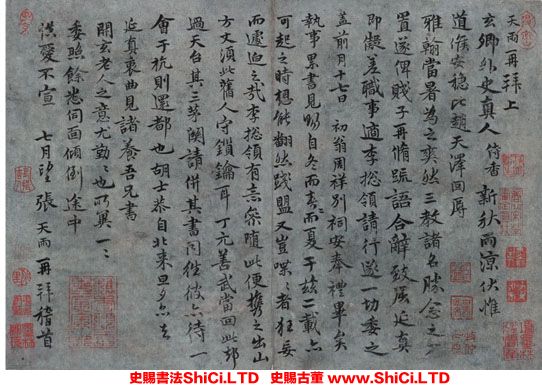 天雨一再拜上
玄卿外史真人 侍香 新秋雨涼伏惟
道候安穩比趙天澤回辱
雅翰當暑為之爽然三教諸名勝念之
置遂俾賤子再脩疏語合辭致屈延真
即擬差職事適李総領請行遂一切委之
蓋前月十七日 初翁周祥別祠安奉禮畢矣
執事累書見賜自冬而春而夏于玆二載亦
可起之時想能翻然踐盟又豈喋喋者狂妄
而遽迫之哉李総領有志
方丈須此舊人守鎖鑰耳丁元善武當回此
過天台其三茅闕請併其書同往彼亦待一
會于杭則還都也胡士恭自北來旦夕亦去
延真衷曲見諸養吾兄書
開玄老人之意尤勤勤也所冀一一
委照餘悉同面傾倒 途中
洪愛不宣 七月 張天雨一再拜稽首
史賜書法ShiCi.LTD 史賜古董 www.ShiCi.LTD